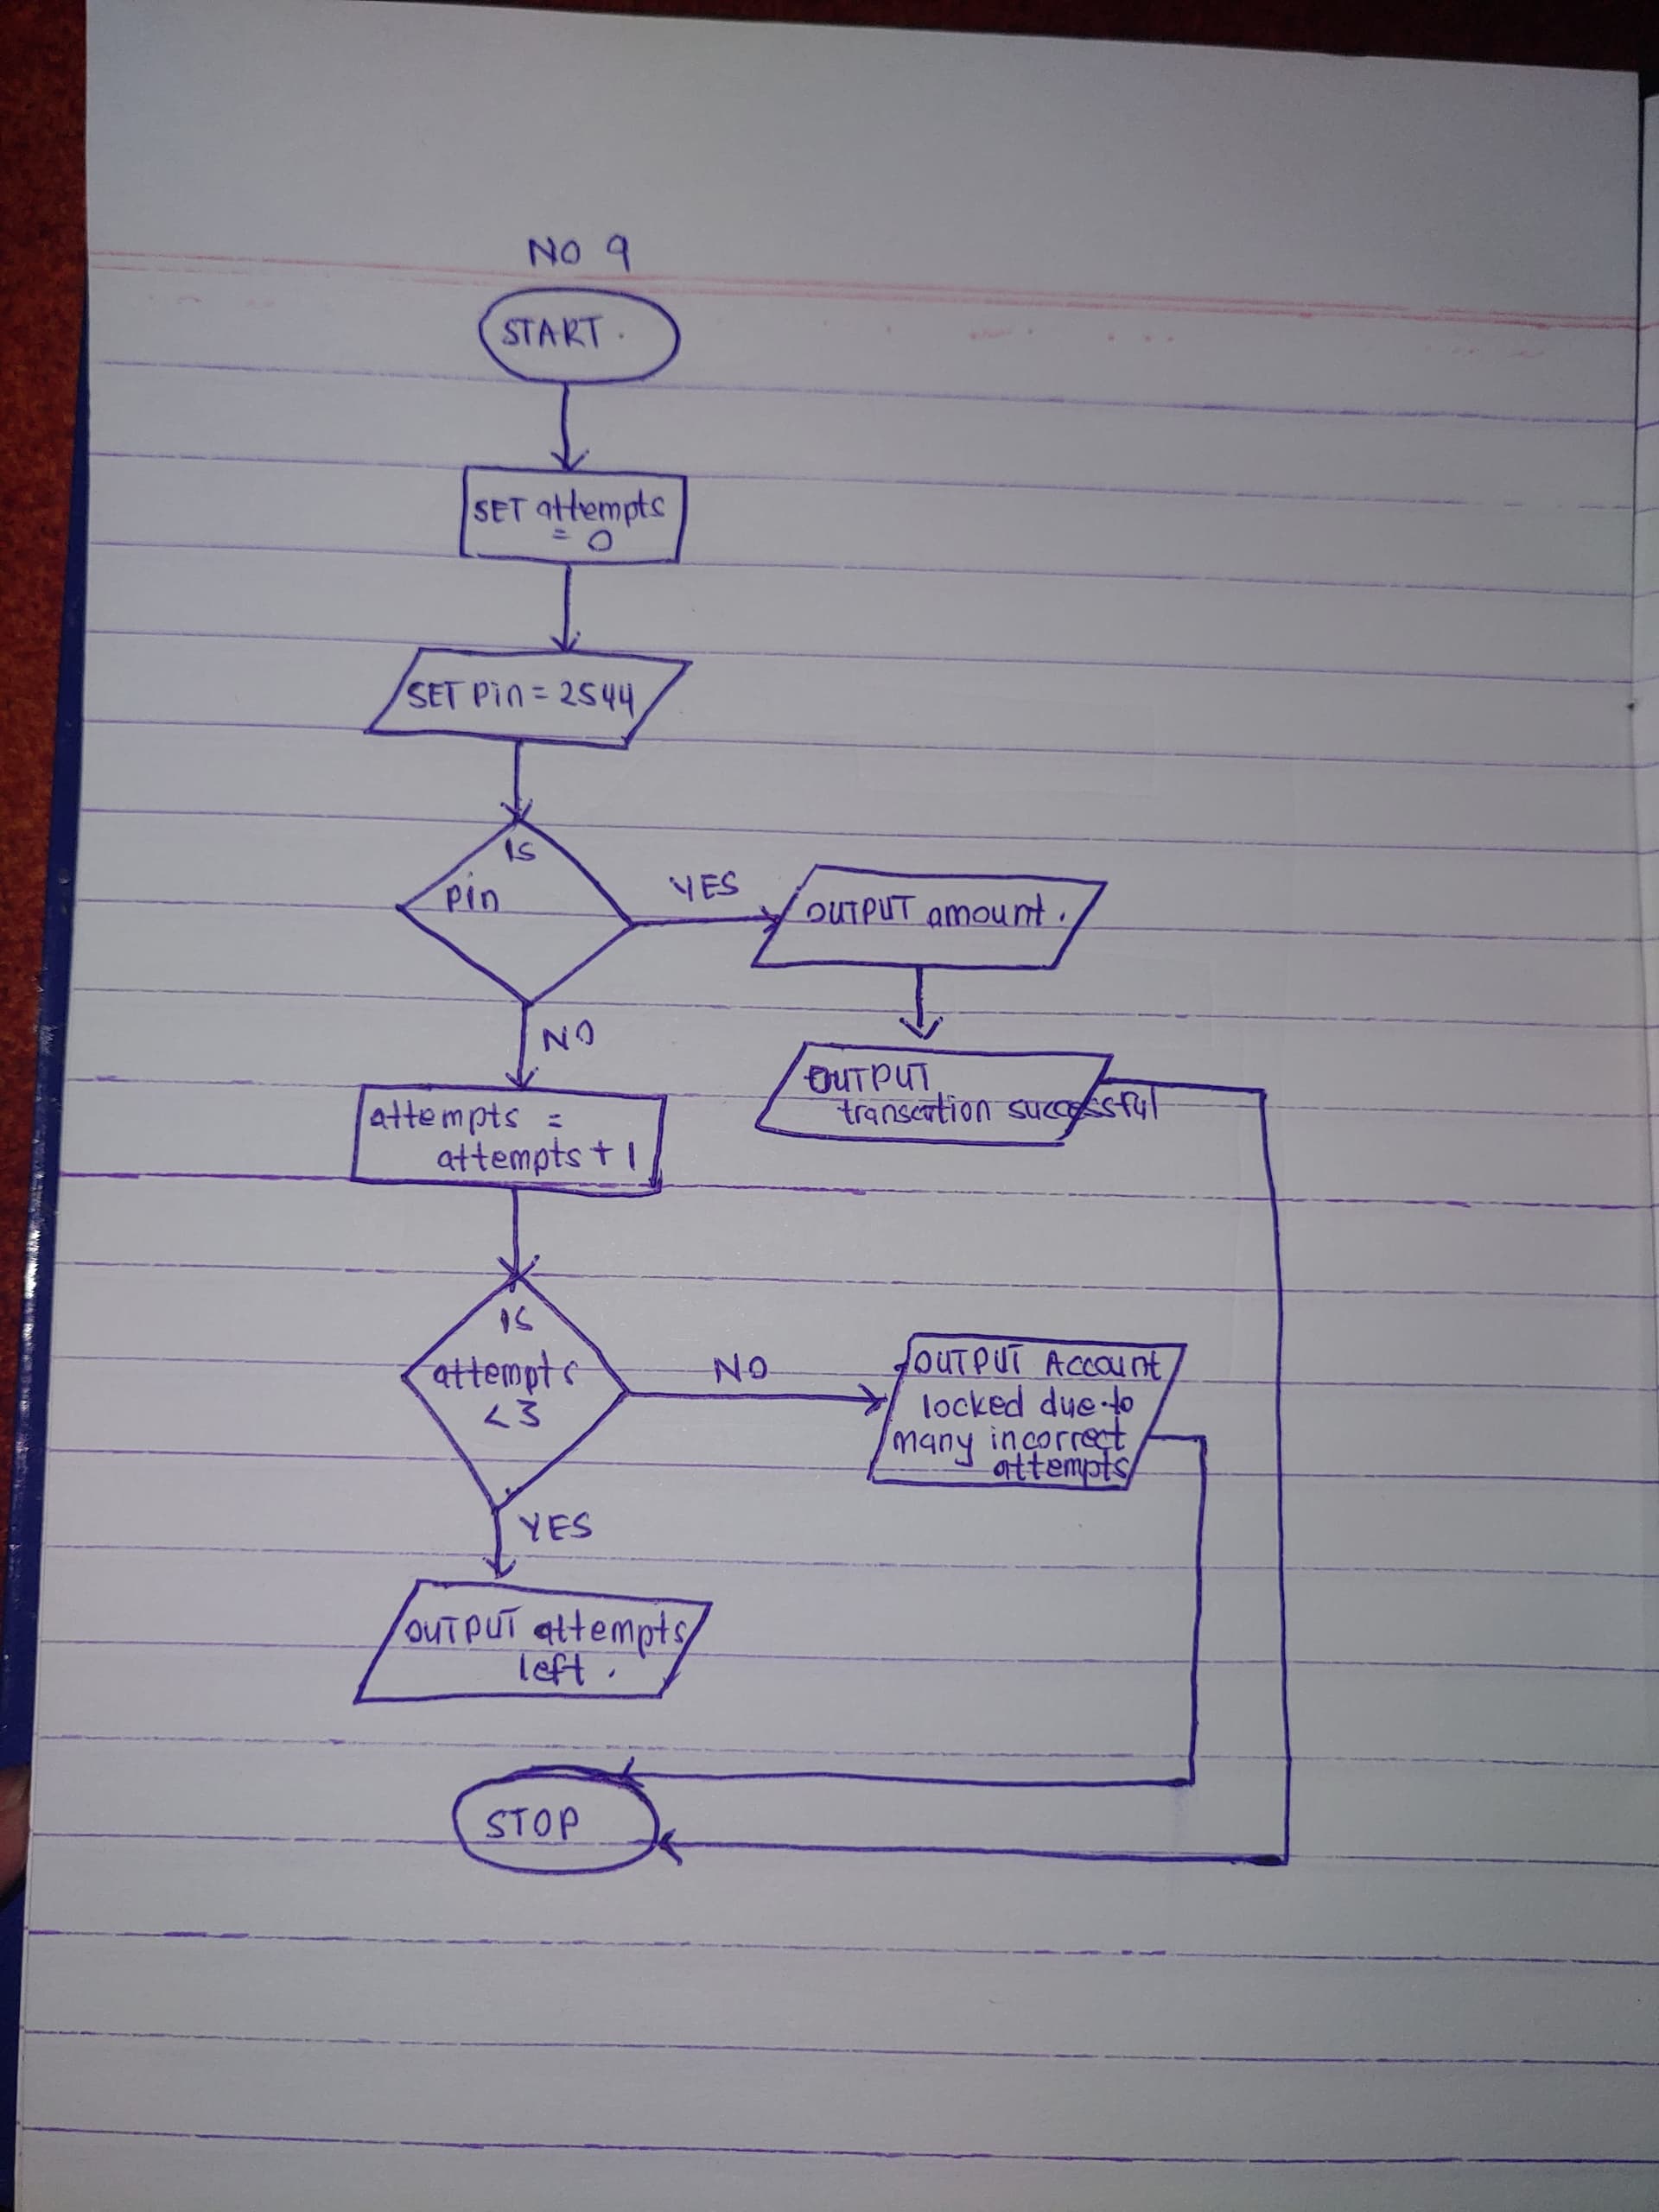 NO 9
START.
SET attempts
= 0
SET pin = 2544
IS
pin
YES
OUTPUT amount.
NO
OUTPUT
transcation successful
attempts =
attempts + 1
IS
attempts
<3
NO
OUTPUT Account
locked due to
many incorrect
attempts
YES
OUTPUT attempts
left.
STOP